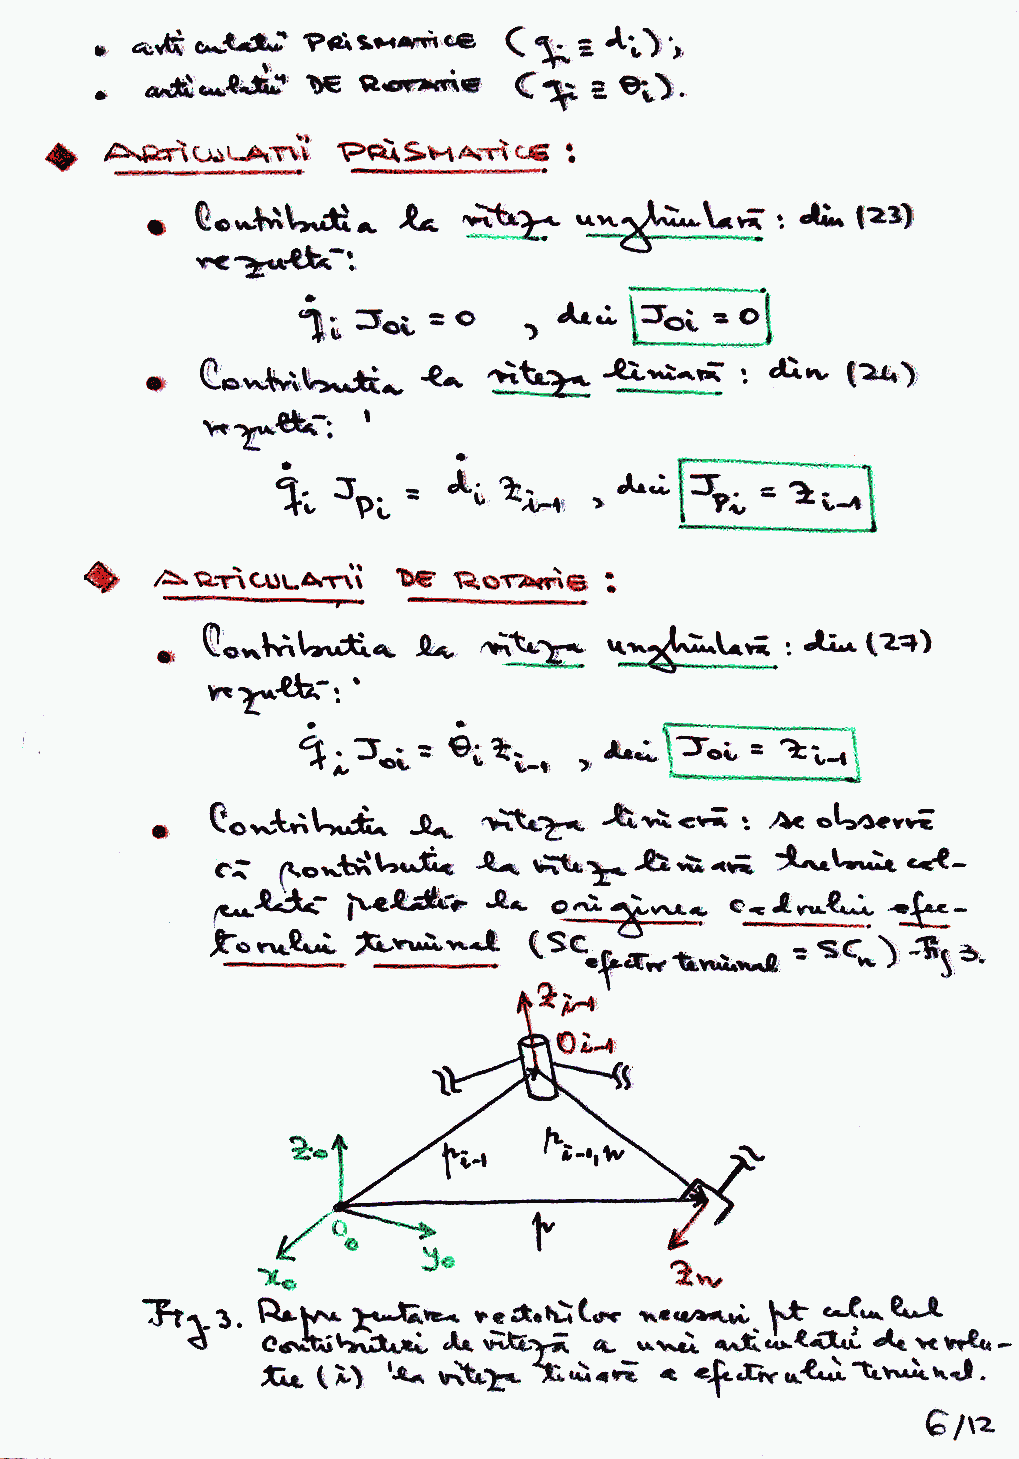 • articulatii PRISMATICE (qi ≡ di);
• articulatii DE ROTATIE (qi ≡ θi).
◆ ARTICULATII PRISMATICE:
• Contributia la viteza unghiulară: din (23)
rezultă:
q̇i JOi = 0 , deci JOi = 0
• Contributia la viteza liniară: din (24)
rezultă:
q̇i JPi = ḋi zi-1 , deci JPi = zi-1
◆ ARTICULATII DE ROTATIE:
• Contributia la viteza unghiulară: din (27)
rezultă:
q̇i JOi = θ̇i zi-1 , deci JOi = zi-1
• Contributia la viteza liniară: se observă
că contributia la viteza liniară trebuie cal-
culată relativ la originea cadrului efec-
torului terminal (SC efector terminal = SCn) - Fig 3.
zi-1
Oi-1
z0
pi-1
pi-1,n
O0
p
y0
x0
zn
Fig 3. Reprezentarea vectorilor necesari pt calculul
contributiei de viteză a unei articulatii de revolu-
tie (i) la viteza liniară a efectorului terminal.
6/12